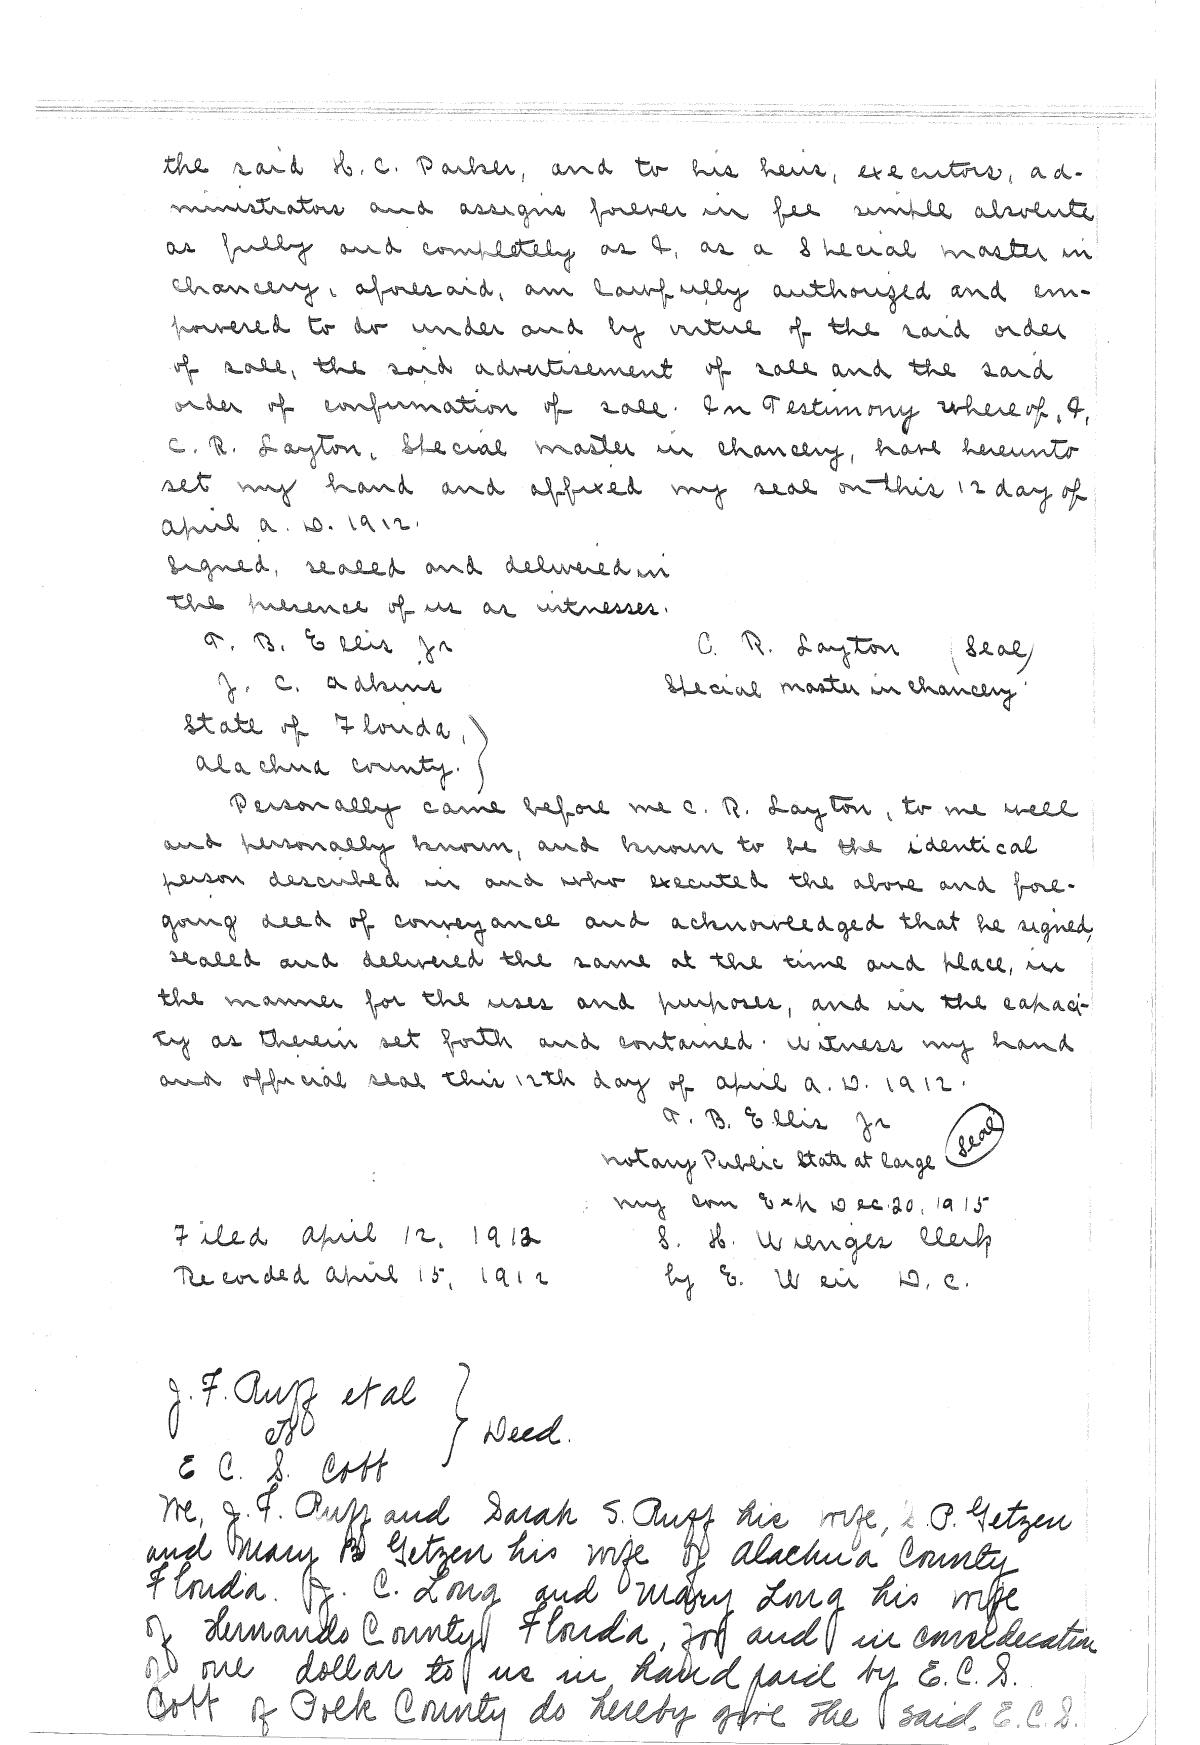 the said H. C. Parker, and to his heirs, executors, ad-
ministrators and assigns forever in fee simple absolute
as fully and completely as I, as a Special master in
chancery, aforesaid, am lawfully authorized and em-
powered to do under and by virtue of the said order
of sale, the said advertisement of sale and the said
order of confirmation of sale. In Testimony whereof, I,
C. R. Layton, Special master in chancery, have hereunto
set my hand and affixed my seal on this 12 day of
April A. D. 1912.
Signed, sealed and delivered in
the presence of us as witnesses.
T. B. Ellis Jr C. R. Layton (Seal)
J. C. Adkins Special master in chancery
State of Florida, }
Alachua County. }
Personally came before me C. R. Layton, to me well
and personally known, and known to be the identical
person described in and who executed the above and fore-
going deed of conveyance and acknowledged that he signed,
sealed and delivered the same at the time and place, in
the manner for the uses and purposes, and in the capaci-
ty as therein set forth and contained. Witness my hand
and official seal this 12th day of April A. D. 1912.
T. B. Ellis Jr
Notary Public State at large Seal
my com Exp Dec. 20, 1915
Filed April 12, 1912 S. H. Wienges Clerk
Recorded April 15, 1912 by E. Weir D. C.
J. F. Ruff et al
to } Deed.
E C. S. Cott
We, J. F. Ruff and Sarah S. Ruff his wife, P. Getzen
and Mary B Getzen his wife of Alachua County
Florida. J. C. Long and Mary Long his wife
of Hernando County Florida, for and in consideration
of one dollar to us in hand paid by E. C. S.
Cott of Polk County do hereby give the said, E. C. S.